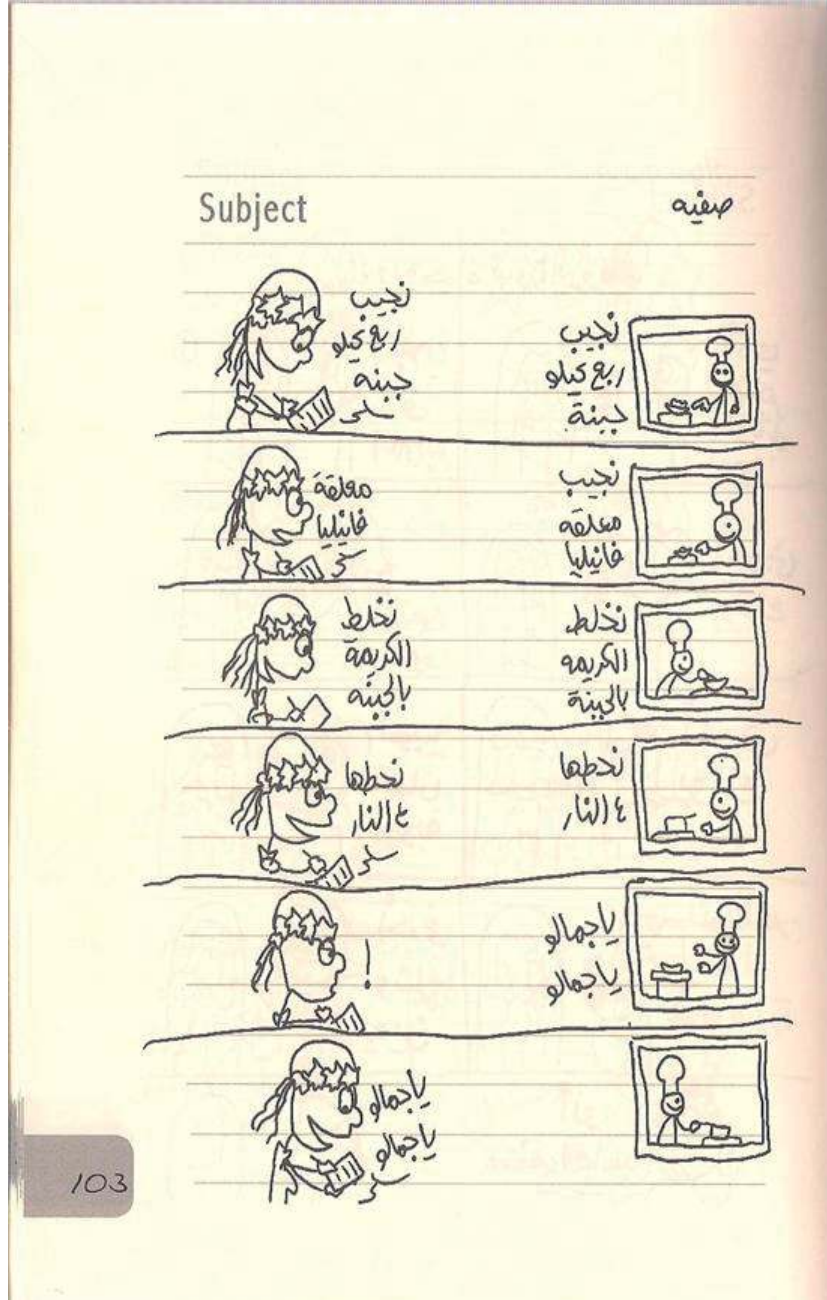 Subject
صفيه
نجيب
ربع كيلو
جبنة
نجيب
ربع كيلو
جبنه
نجيب
معلقه
فانيليا
معلقة
فانيليا
نخلط
الكريمه
بالجبنة
نخلط
الكريمة
بالجبنه
نحطها
ع النار
نحطها
ع النار
ياجمالو
ياجمالو
!
ياجمالو
ياجمالو
103